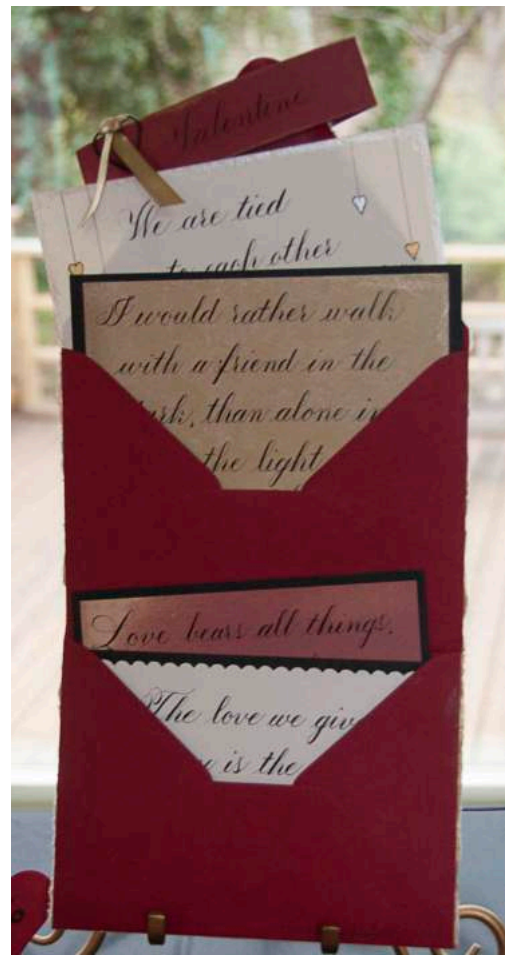 Valentine
We are tied
to each other
I would rather walk
with a friend in the
dark, than alone in
the light
Love bears all things,
The love we give
is the